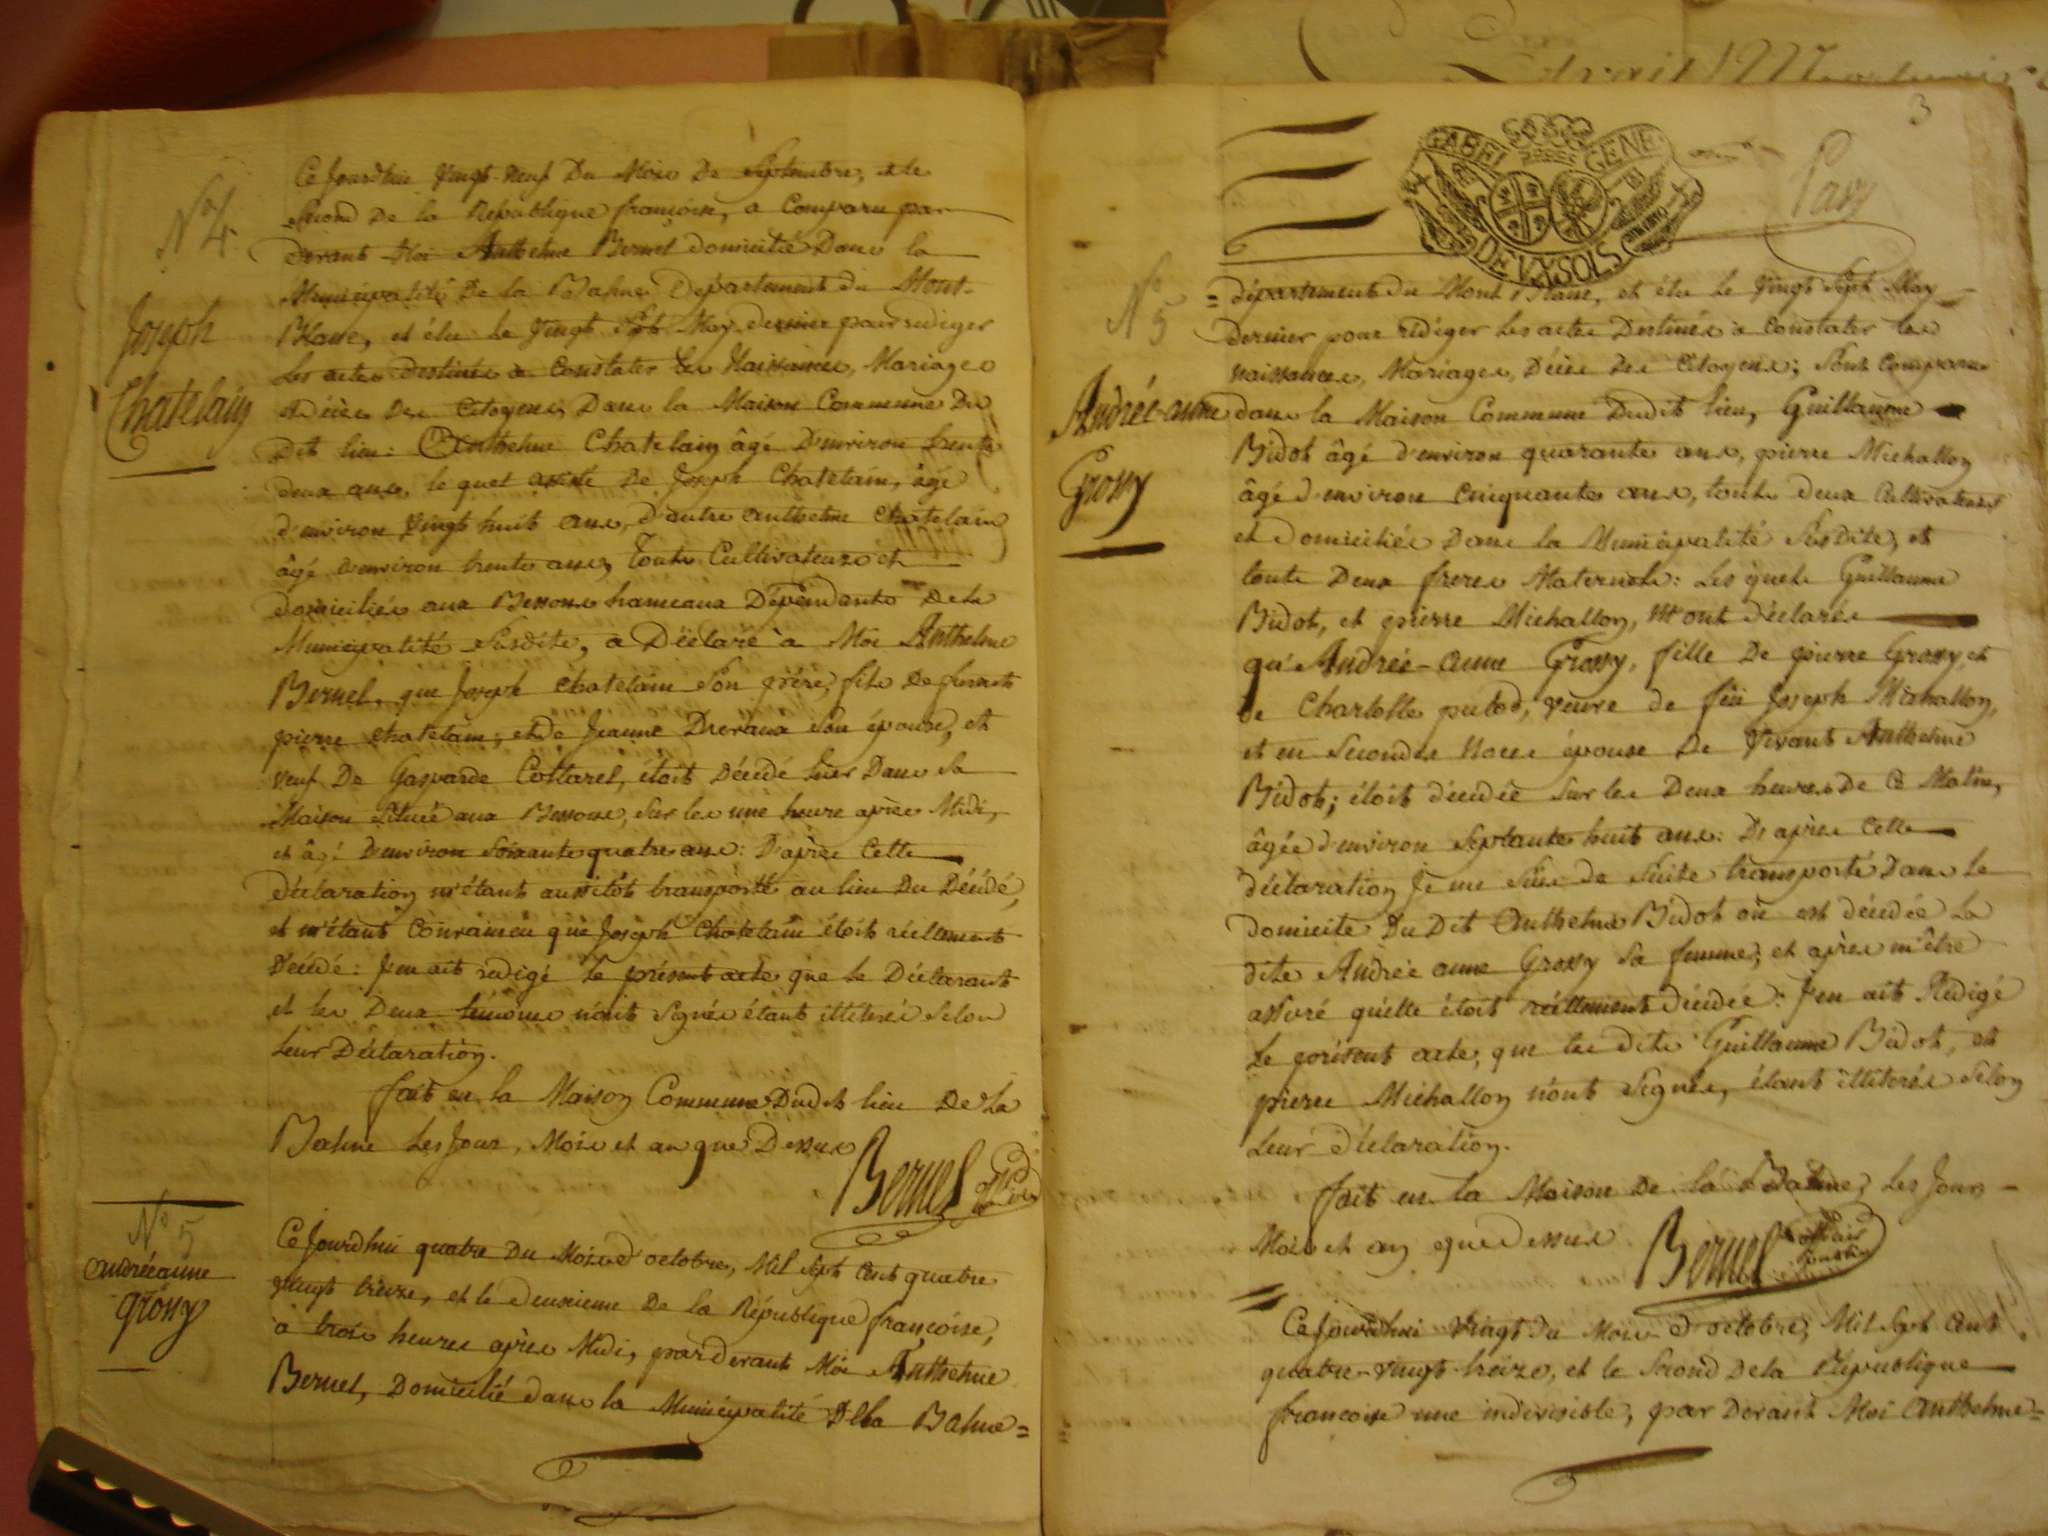 N.° 4.
Joseph
Chatelain
Ce Jourdhui Vingt-neuf Du Mois De Septembre, et le
Second De la Republique françoise, a Comparu par
devant Moi Anthelme Bernel domicilié Dans la
Municipalité De la Balme Departement du Mont-
Blanc, et élu Le Vingt Sept May dernier pour rediger
Les actes destinés a Constater Les Naissances, Mariages
et décès Des Citoyens, Dans la Maison Commune Du
Dit lieu: Anthelme Chatelain âgé D'environ trente
deux ans, le quel assisté De Joseph Chatelain, âgé
d'environ Vingt huit ans, d'autre anthelme Chatelain
âgé d'environ trente ans, Touts Cultivateurs et
domiciliés aux Bessons hameaux Dépendants De la
Municipalité Susdite, a Déclaré à Moi Anthelme
Bernel, que Joseph Chatelain Son père, fils De
pierre Chatelain, et de Jeanne Devaux Son épouse, et
veuf De Gasparde Collarel, étoit Décédé hier Dans Sa
Maison Située aux Bessons, Sur les une heure après Midi,
et âgé D'environ Soixante quatre ans: D'après Cette
déclaration m'étant aussitôt transporté au lieu Du Décédé,
et m'étant Convaincu que Joseph Chatelain étoit réellement
Décédé: J'en ait rédigé Le présent acte que Le Déclarant
et les Deux témoins n'ont Signés étant illiterés Selon
Leur Déclaration.
fait en la Maison Commune Dudit lieu De La
Balme Les Jour, Mois et an que Dessus
Bernel
N° 5
andréeanne
grossy
Ce Jourdhui quatre Du Mois d'octobre, Mil Sept Cent quatre
vingt treize, et le deuxieme De la République françoise,
à trois heures après Midi, par devant Moi Anthelme
Bernel, Domicilié dans la Municipalité De la Balme =
3
GABEL GENE
DEUX SOLS
Pavy
N° 5
Andrée-anne
Grossy
= département du Mont Blanc, et élu Le Vingt Sept May
dernier pour rédiger Les actes Destinés à Constater Les
naissances, Mariages, Décès Des Citoyens; Sont Comparu
dans la Maison Commune Dudit lieu, Guillaume
Bidot âgé d'environ quarante ans, pierre Michallon
âgé d'environ Cinquante ans, touts deux Cultivateurs
et domiciliés Dans la Municipalité Susdite, et
touts Deux freres Maternels: Les quels Guillaume
Bidot, et pierre Michallon, M'ont déclarés
qu'Andrée-anne Grossy, fille De pierre Grossy et
de Charlotte putod, veuve de feu Joseph Michallon,
et en Secondes Noces épouse De Vivant Anthelme
Bidot; étoit décédée Sur les Deux heures De Ce Matin,
âgée d'environ Septante huit ans: D'après Cette
déclaration Je me Suis de Suite transporté Dans le
domicile Du Dit Anthelme Bidot où est décédée La
dite Andrée anne Grossy Sa femme, et après m'être
assuré qu'elle étoit réellement décédée: J'en ait Rédigé
Le présent acte, que les dits Guillaume Bidot, et
pierre Michallon n'ont Signés, étant illiterés Selon
Leur déclaration.
fait en la Maison De la Balme, Les Jour
Mois et an que dessus
Bernel officier public
Ce Jourdhui Vingt du Mois d'octobre, Mil Sept Cent
quatre-vingt-treize, et le Second De la République
françoise une indivisible, par Devant Moi Anthelme =